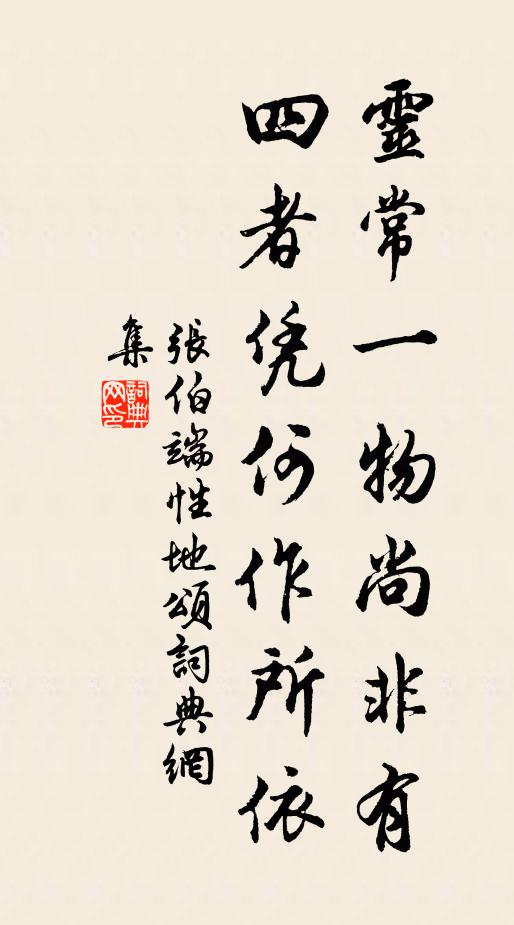 靈常一物尚非有
四者凭何作所依
張伯端性地頌詞典網
集
詞典網印